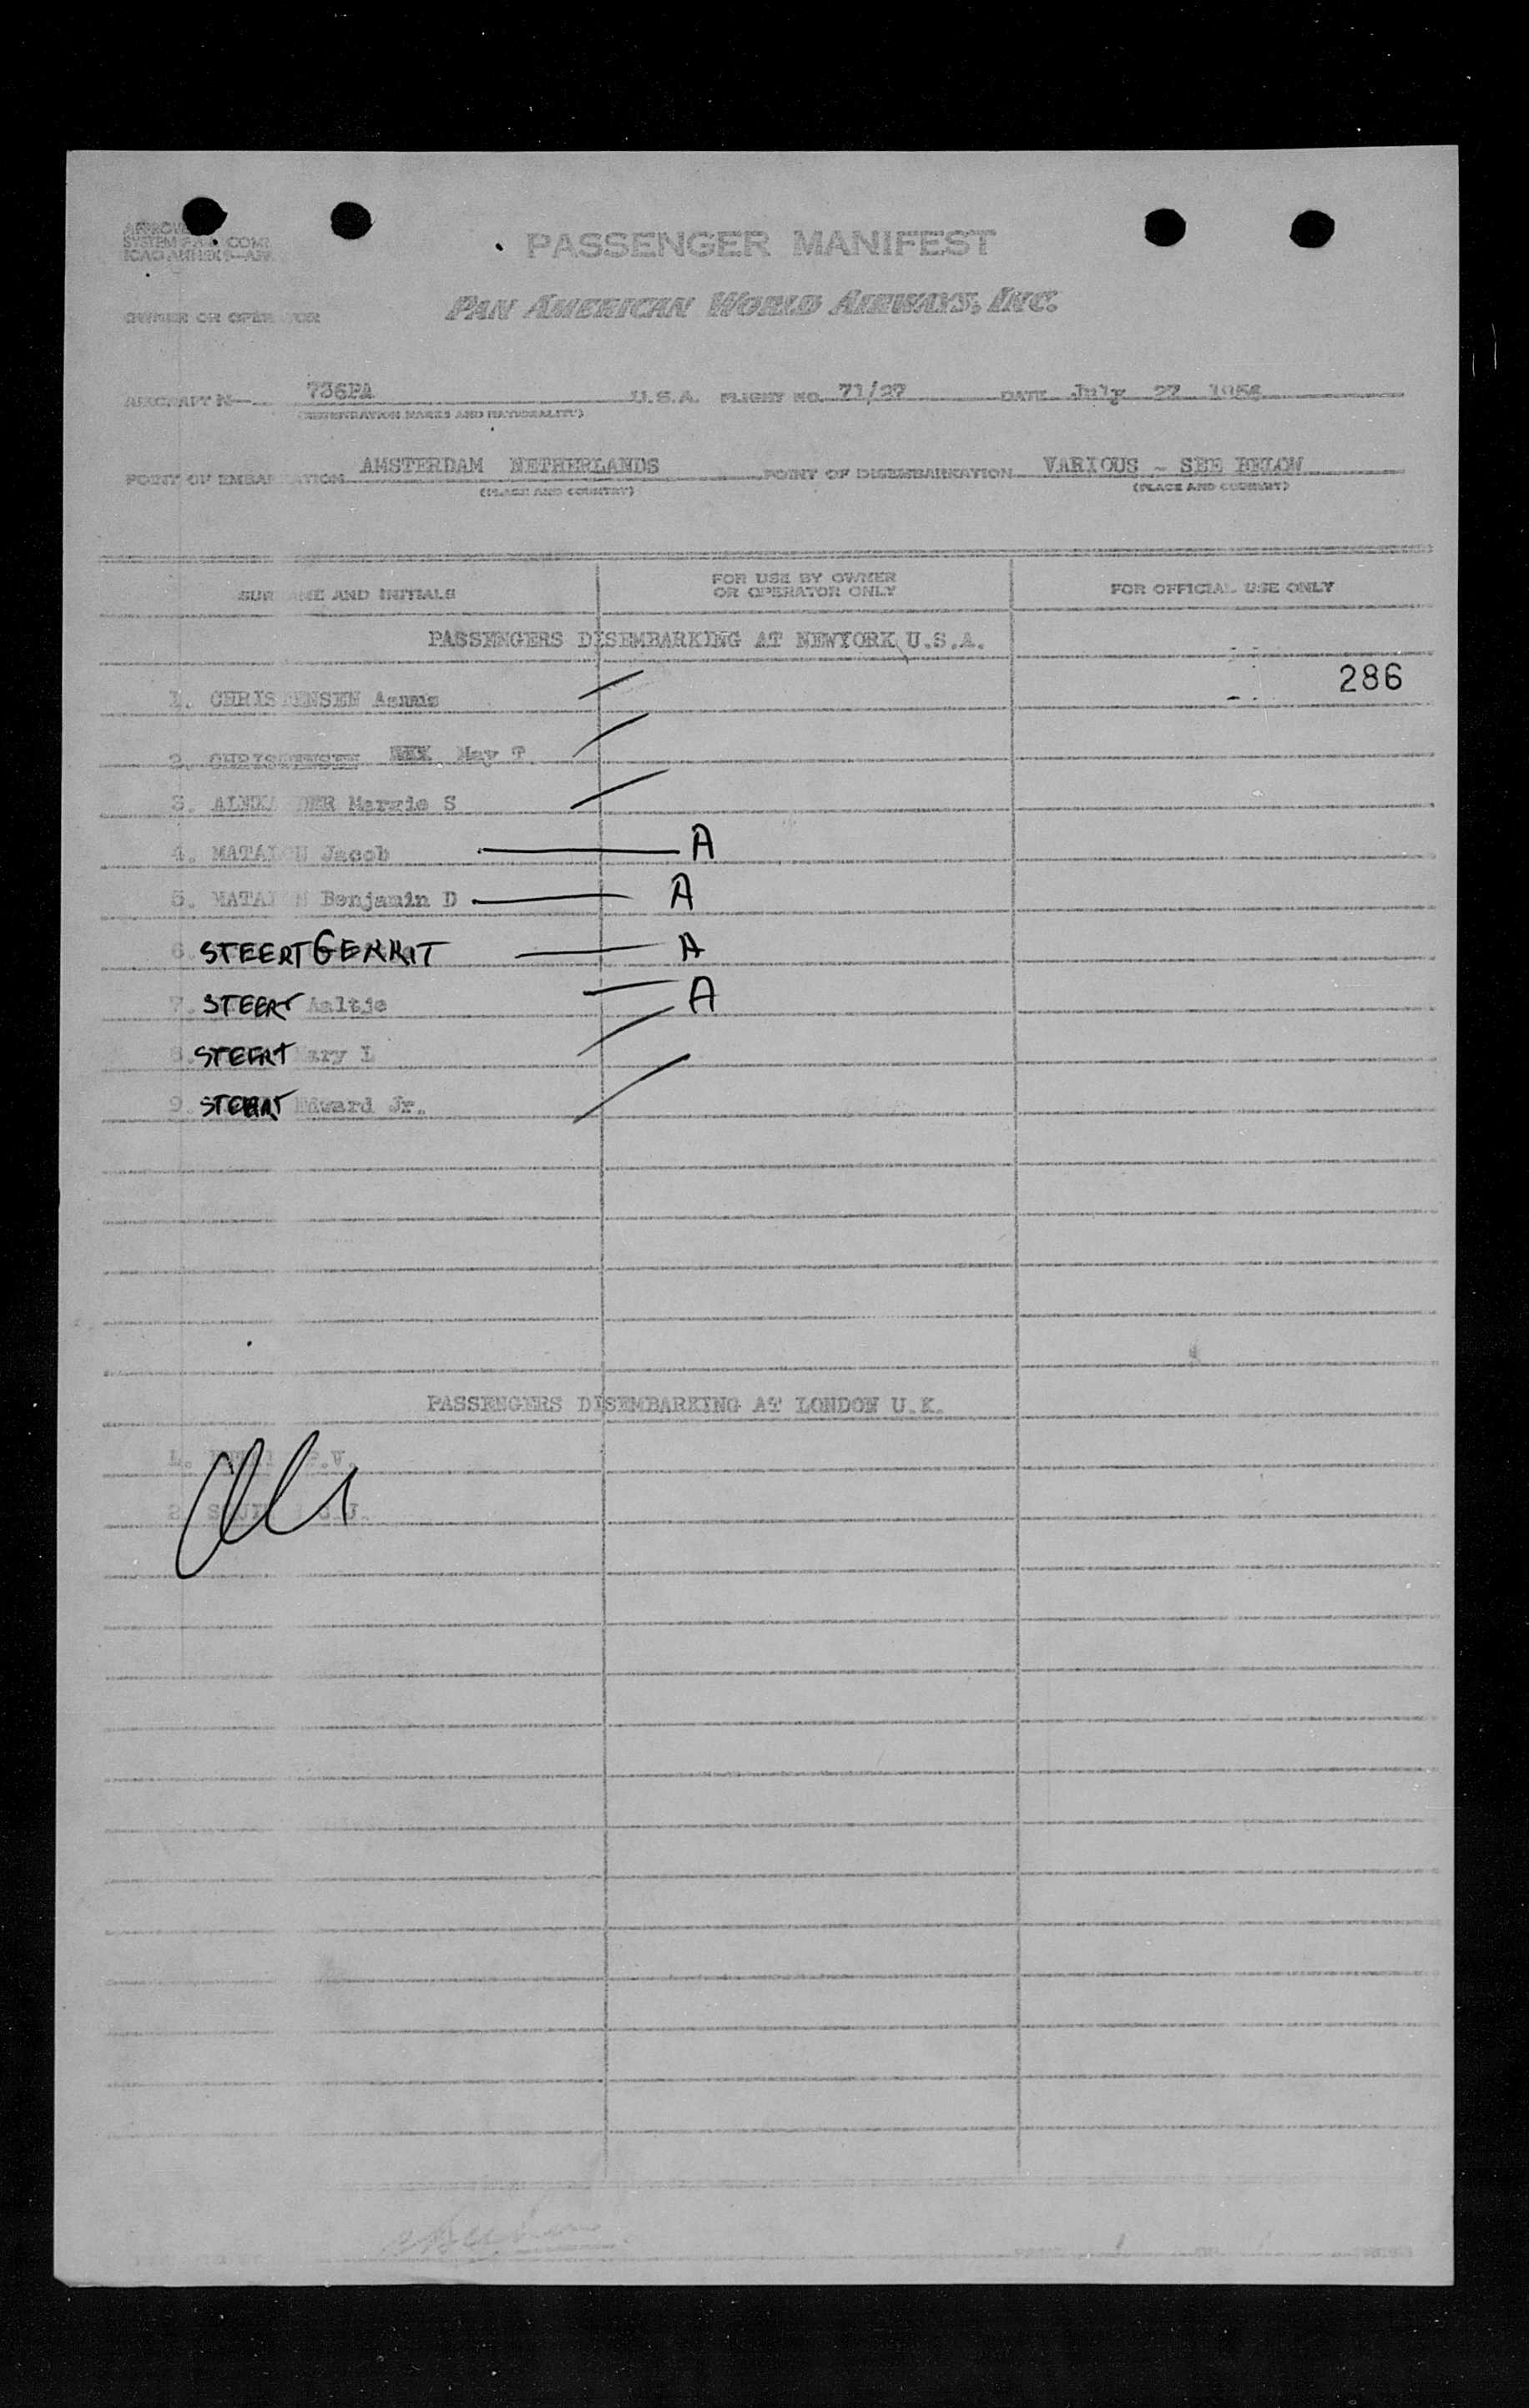 PASSENGER MANIFEST
PAN AMERICAN WORLD AIRWAYS, INC.
OWNER OR OPERATOR
AIRCRAFT N— 736PA U.S.A. FLIGHT NO. 71/27 DATE July 27
(REGISTRATION MARKS AND NATIONALITY)
POINT OF EMBARKATION AMSTERDAM NETHERLANDS POINT OF DISEMBARKATION VARIOUS - SEE BELOW
(PLACE AND COUNTRY) (PLACE AND COUNTRY)
SURNAME AND INITIALS
FOR USE BY OWNER
OR OPERATOR ONLY
FOR OFFICIAL USE ONLY
PASSENGERS DISEMBARKING AT NEWYORK U.S.A.
286
1. CHRISTENSEN
2. CHRISTENSEN May T
3. S
4. Jacob A
5. Benjamin D A
6. STEERT GERRIT A
7. STEERT Aaltje A
8. STEERT Mary L
9. STEERT Edward Jr.
PASSENGERS DISEMBARKING AT LONDON U.K.
1.
2.